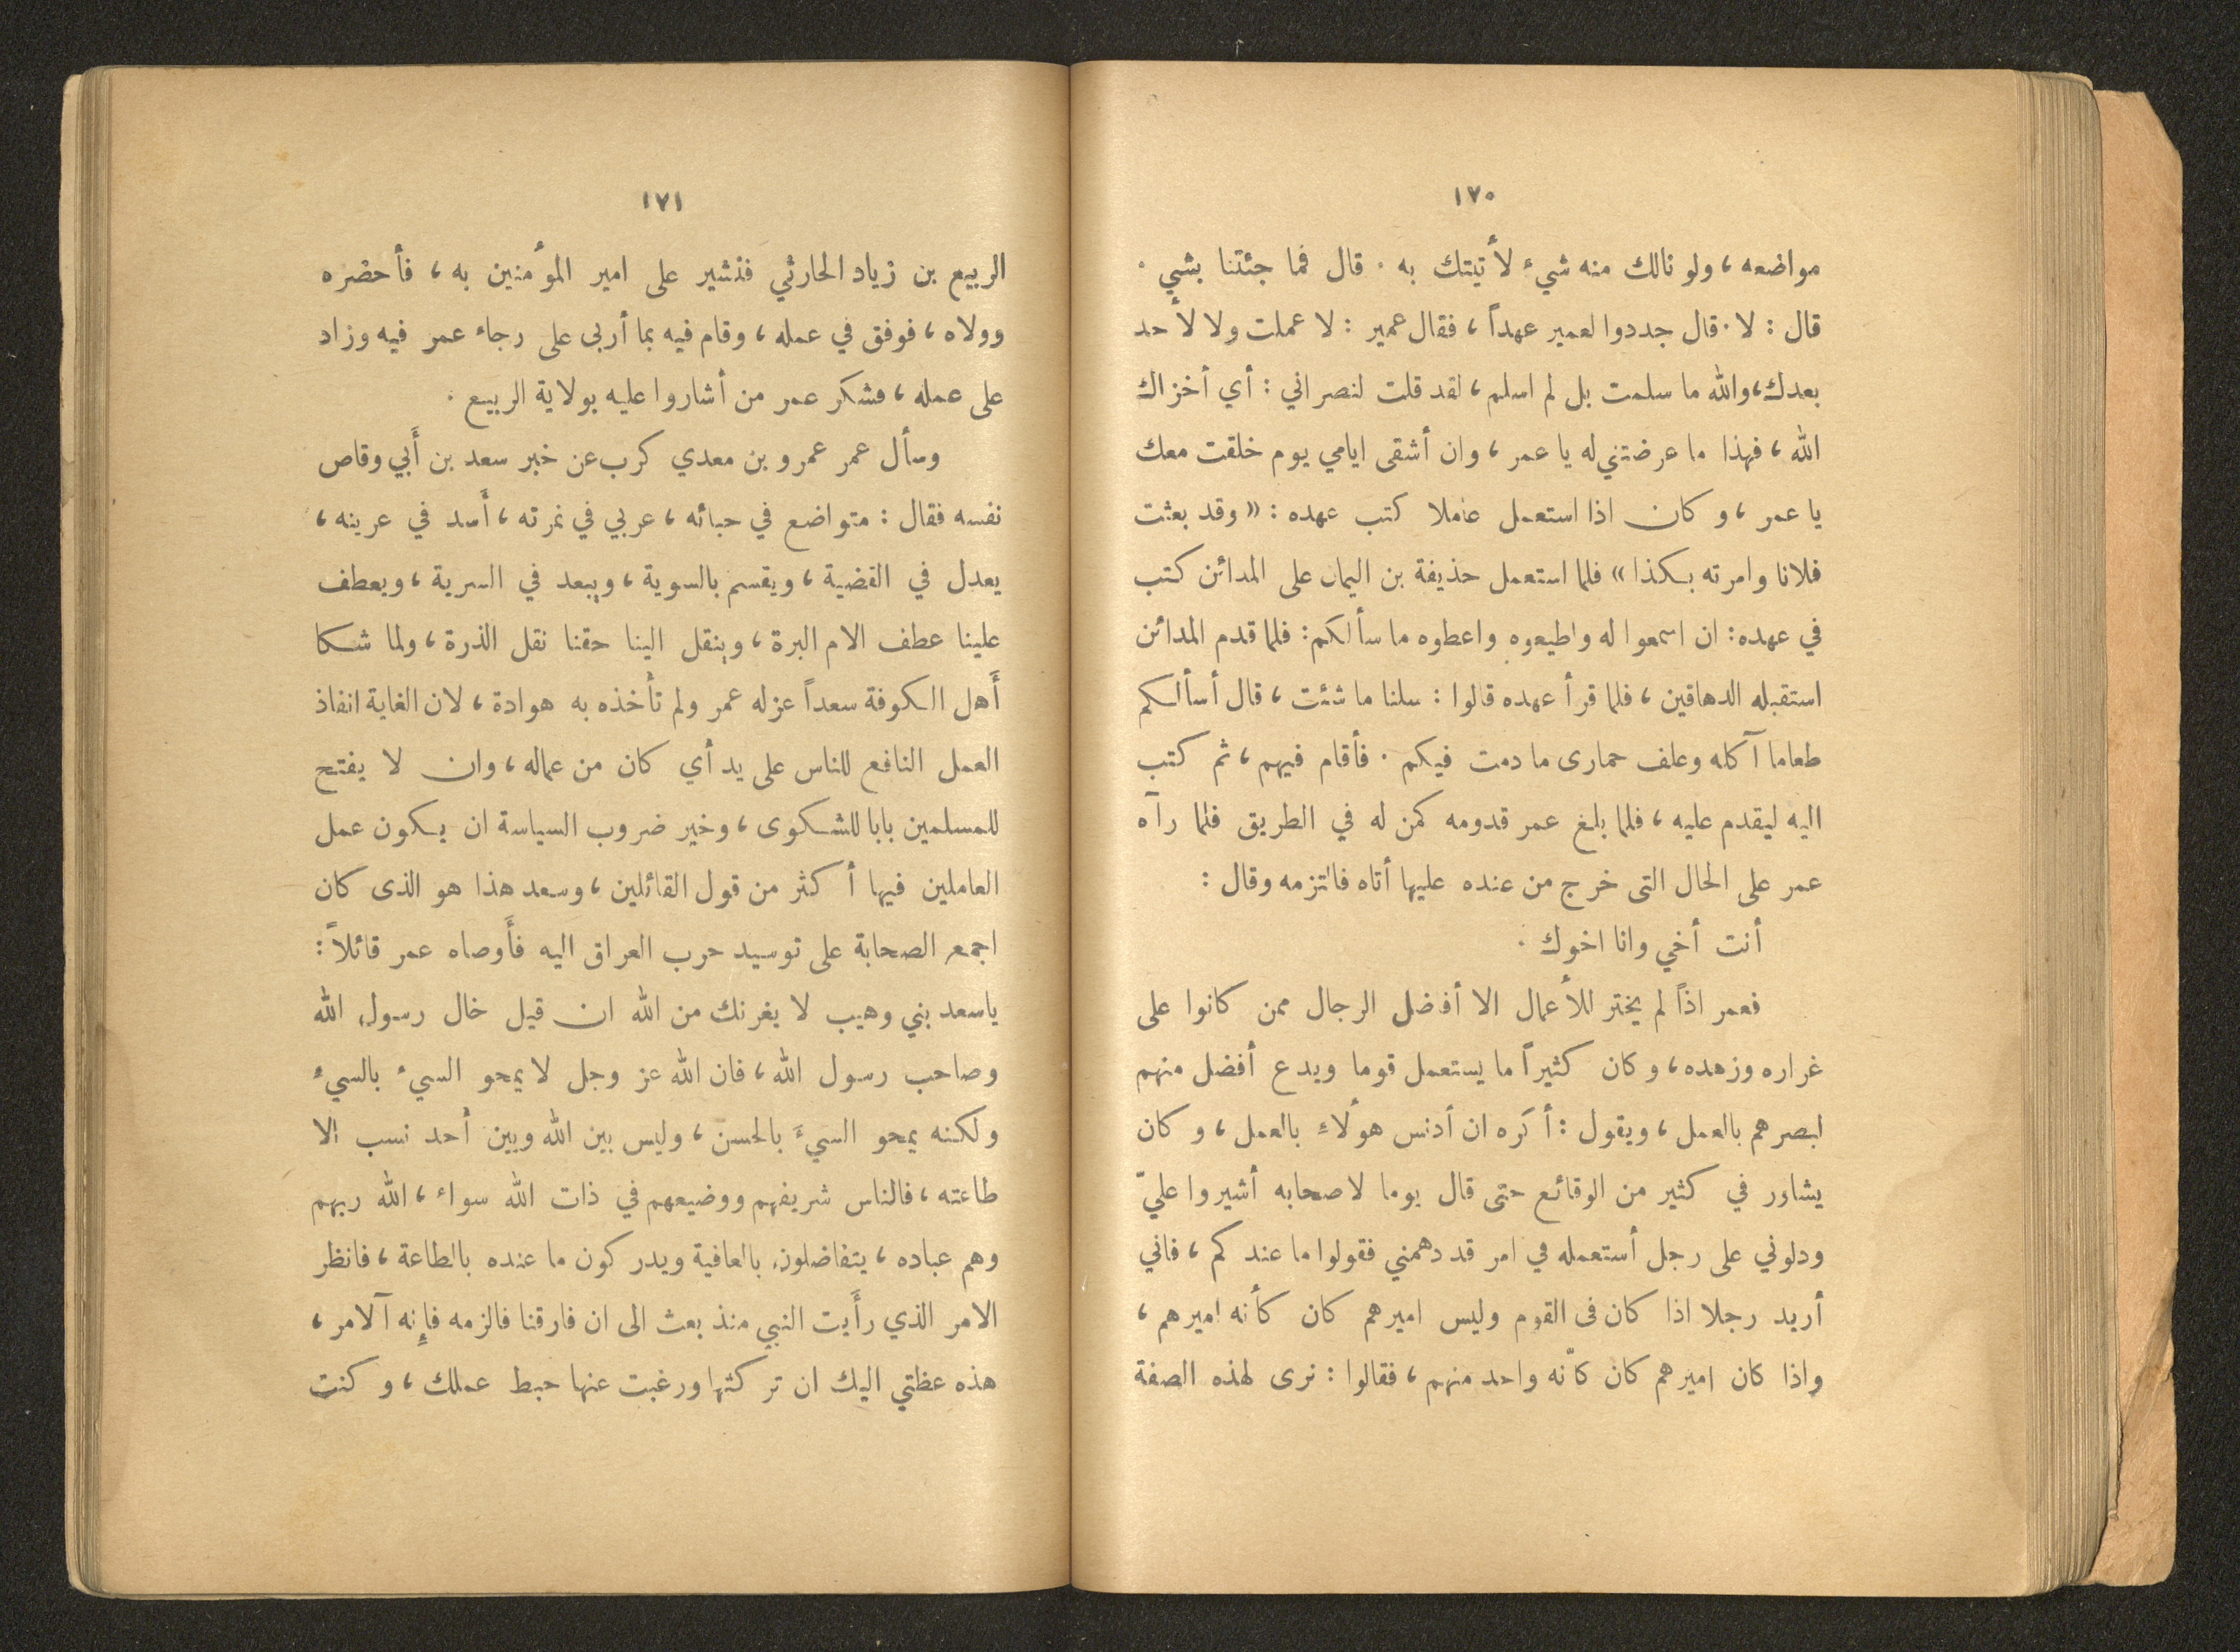 ١٧٠
مواضعه، ولو نالك منه شيء لأتيتك به. قال فما جئتنا بشي.
قال: لا. قال جددوا لعمير عهداً، فقال عمير: لا عملت ولا لأحد
بعدك، والله ما سلمت بل لم اسلم، لقد قلت لنصراني: أي أخزاك
الله، فهذا ما عرضتني له يا عمر، وان أشقى ايامي يوم خلقت معك
يا عمر، وكان اذا استعمل عاملا كتب عهده: «وقد بعثت
فلانا وامرته بكذا» فلما استعمل حذيفة بن اليمان على المدائن كتب
في عهده: ان اسمعوا له واطيعوه واعطوه ما سألكم: فلما قدم المدائن
استقبله الدهاقين، فلما قرأ عهده قالوا: سلنا ما شئت، قال أسألكم
طعاما آكله وعلف حمارى ما دمت فيكم. فأقام فيهم، ثم كتب
اليه ليقدم عليه، فلما بلغ عمر قدومه كمن له في الطريق فلما رآه
عمر على الحال التى خرج من عنده عليها أتاه فالتزمه وقال:
أنت أخي وانا اخوك.
فعمر اذاً لم يختر للأعمال الا أفضل الرجال ممن كانوا على
غراره وزهده، وكان كثيراً ما يستعمل قوما ويدع أفضل منهم
لبصرهم بالعمل، ويقول: أكره ان أدنس هؤلاء بالعمل، وكان
يشاور في كثير من الوقائع حتى قال يوما لاصحابه أشيروا عليّ
ودلوني على رجل أستعمله في امر قد دهمني فقولوا ما عندكم، فاني
أريد رجلا اذا كان فى القوم وليس اميرهم كان كأنه اميرهم،
واذا كان اميرهم كان كأنه واحد منهم، فقالوا: نرى لهذه الصفة
١٧١
الربيع بن زياد الحارثي فنشير على امير المؤمنين به، فأحضره
وولاه، فوفق في عمله، وقام فيه بما أربى على رجاء عمر فيه وزاد
على عمله، فشكر عمر من أشاروا عليه بولاية الربيع.
وسأل عمر عمرو بن معدي كرب عن خبر سعد بن أَبي وقاص
نفسه فقال: متواضع في حبائه، عربي في نمرته، أَسد في عرينه،
يعدل في القضية، ويقسم بالسوية، ويبعد في السرية، ويعطف
علينا عطف الام البرة، وينقل الينا حقنا نقل الذرة، ولما شكا
أَهل الكوفة سعداً عزله عمر ولم تأخذه به هوادة، لان الغاية انفاذ
العمل النافع للناس على يد أي كان من عماله، وان لا يفتح
للمسلمين بابا للشكوى، وخير ضروب السياسة ان يكون عمل
العاملين فيها أكثر من قول القائلين، وسعد هذا هو الذى كان
اجمع الصحابة على توسيد حرب العراق اليه فأَوصاه عمر قائلاً:
ياسعد بني وهيب لا يغرنك من الله ان قيل خال رسول الله
وصاحب رسول الله، فان الله عز وجل لا يمحو السيء بالسيء
ولكنه يمحو السيءَ بالحسن، وليس بين الله وبين أحد نسب الا
طاعته، فالناس شريفهم ووضيعهم في ذات الله سواء، الله ربهم
وهم عباده، يتفاضلون بالعافية ويدركون ما عنده بالطاعة، فانظر
الامر الذي رأَيت النبي منذ بعث الى ان فارقنا فالزمه فإنه آلامر،
هذه عظتي اليك ان تركتها ورغبت عنها حبط عملك، وكنت